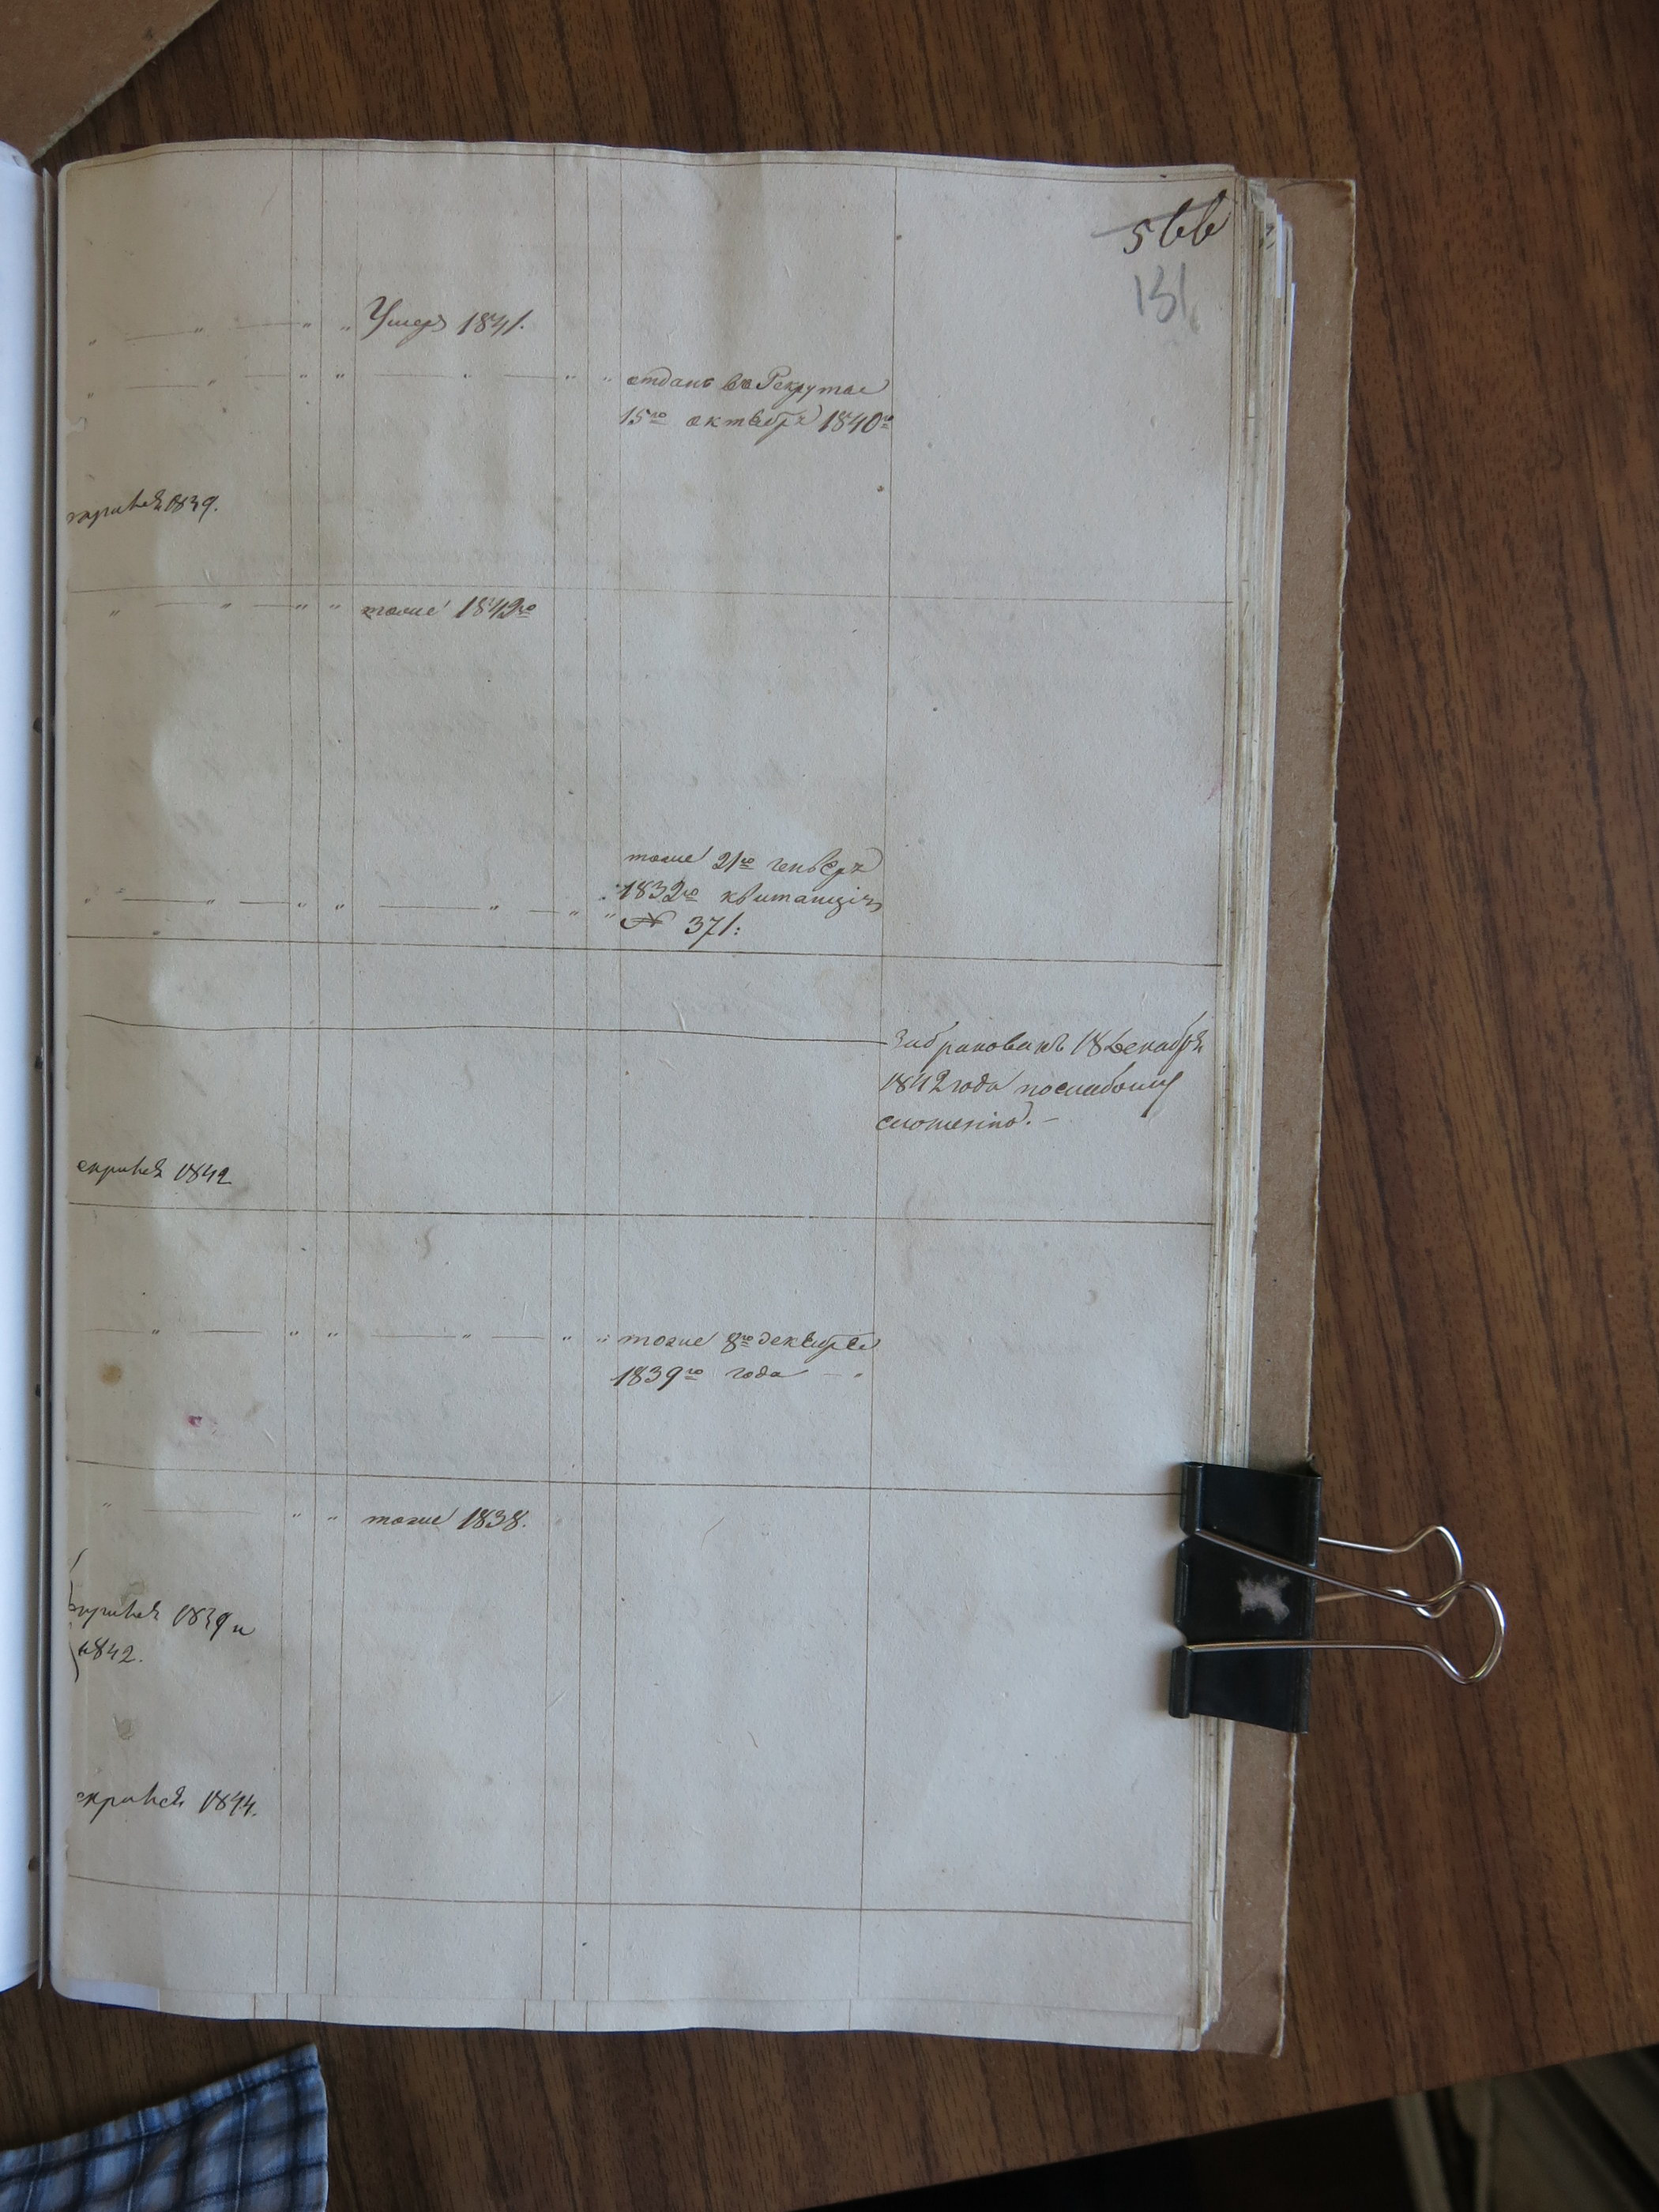 566
131
Умеръ 1841.
отданъ въ Рекруты
15го октября 1840го
1839.
тоже 1842го
тоже 21го генваря
1832го квитанція
№ 371:
Забракованъ 18 Декабря
1842 года послабому
сложенію. —
1842
тоже 8го декабря
1839го года
тоже 1838.
1839 и
1842.
1844.